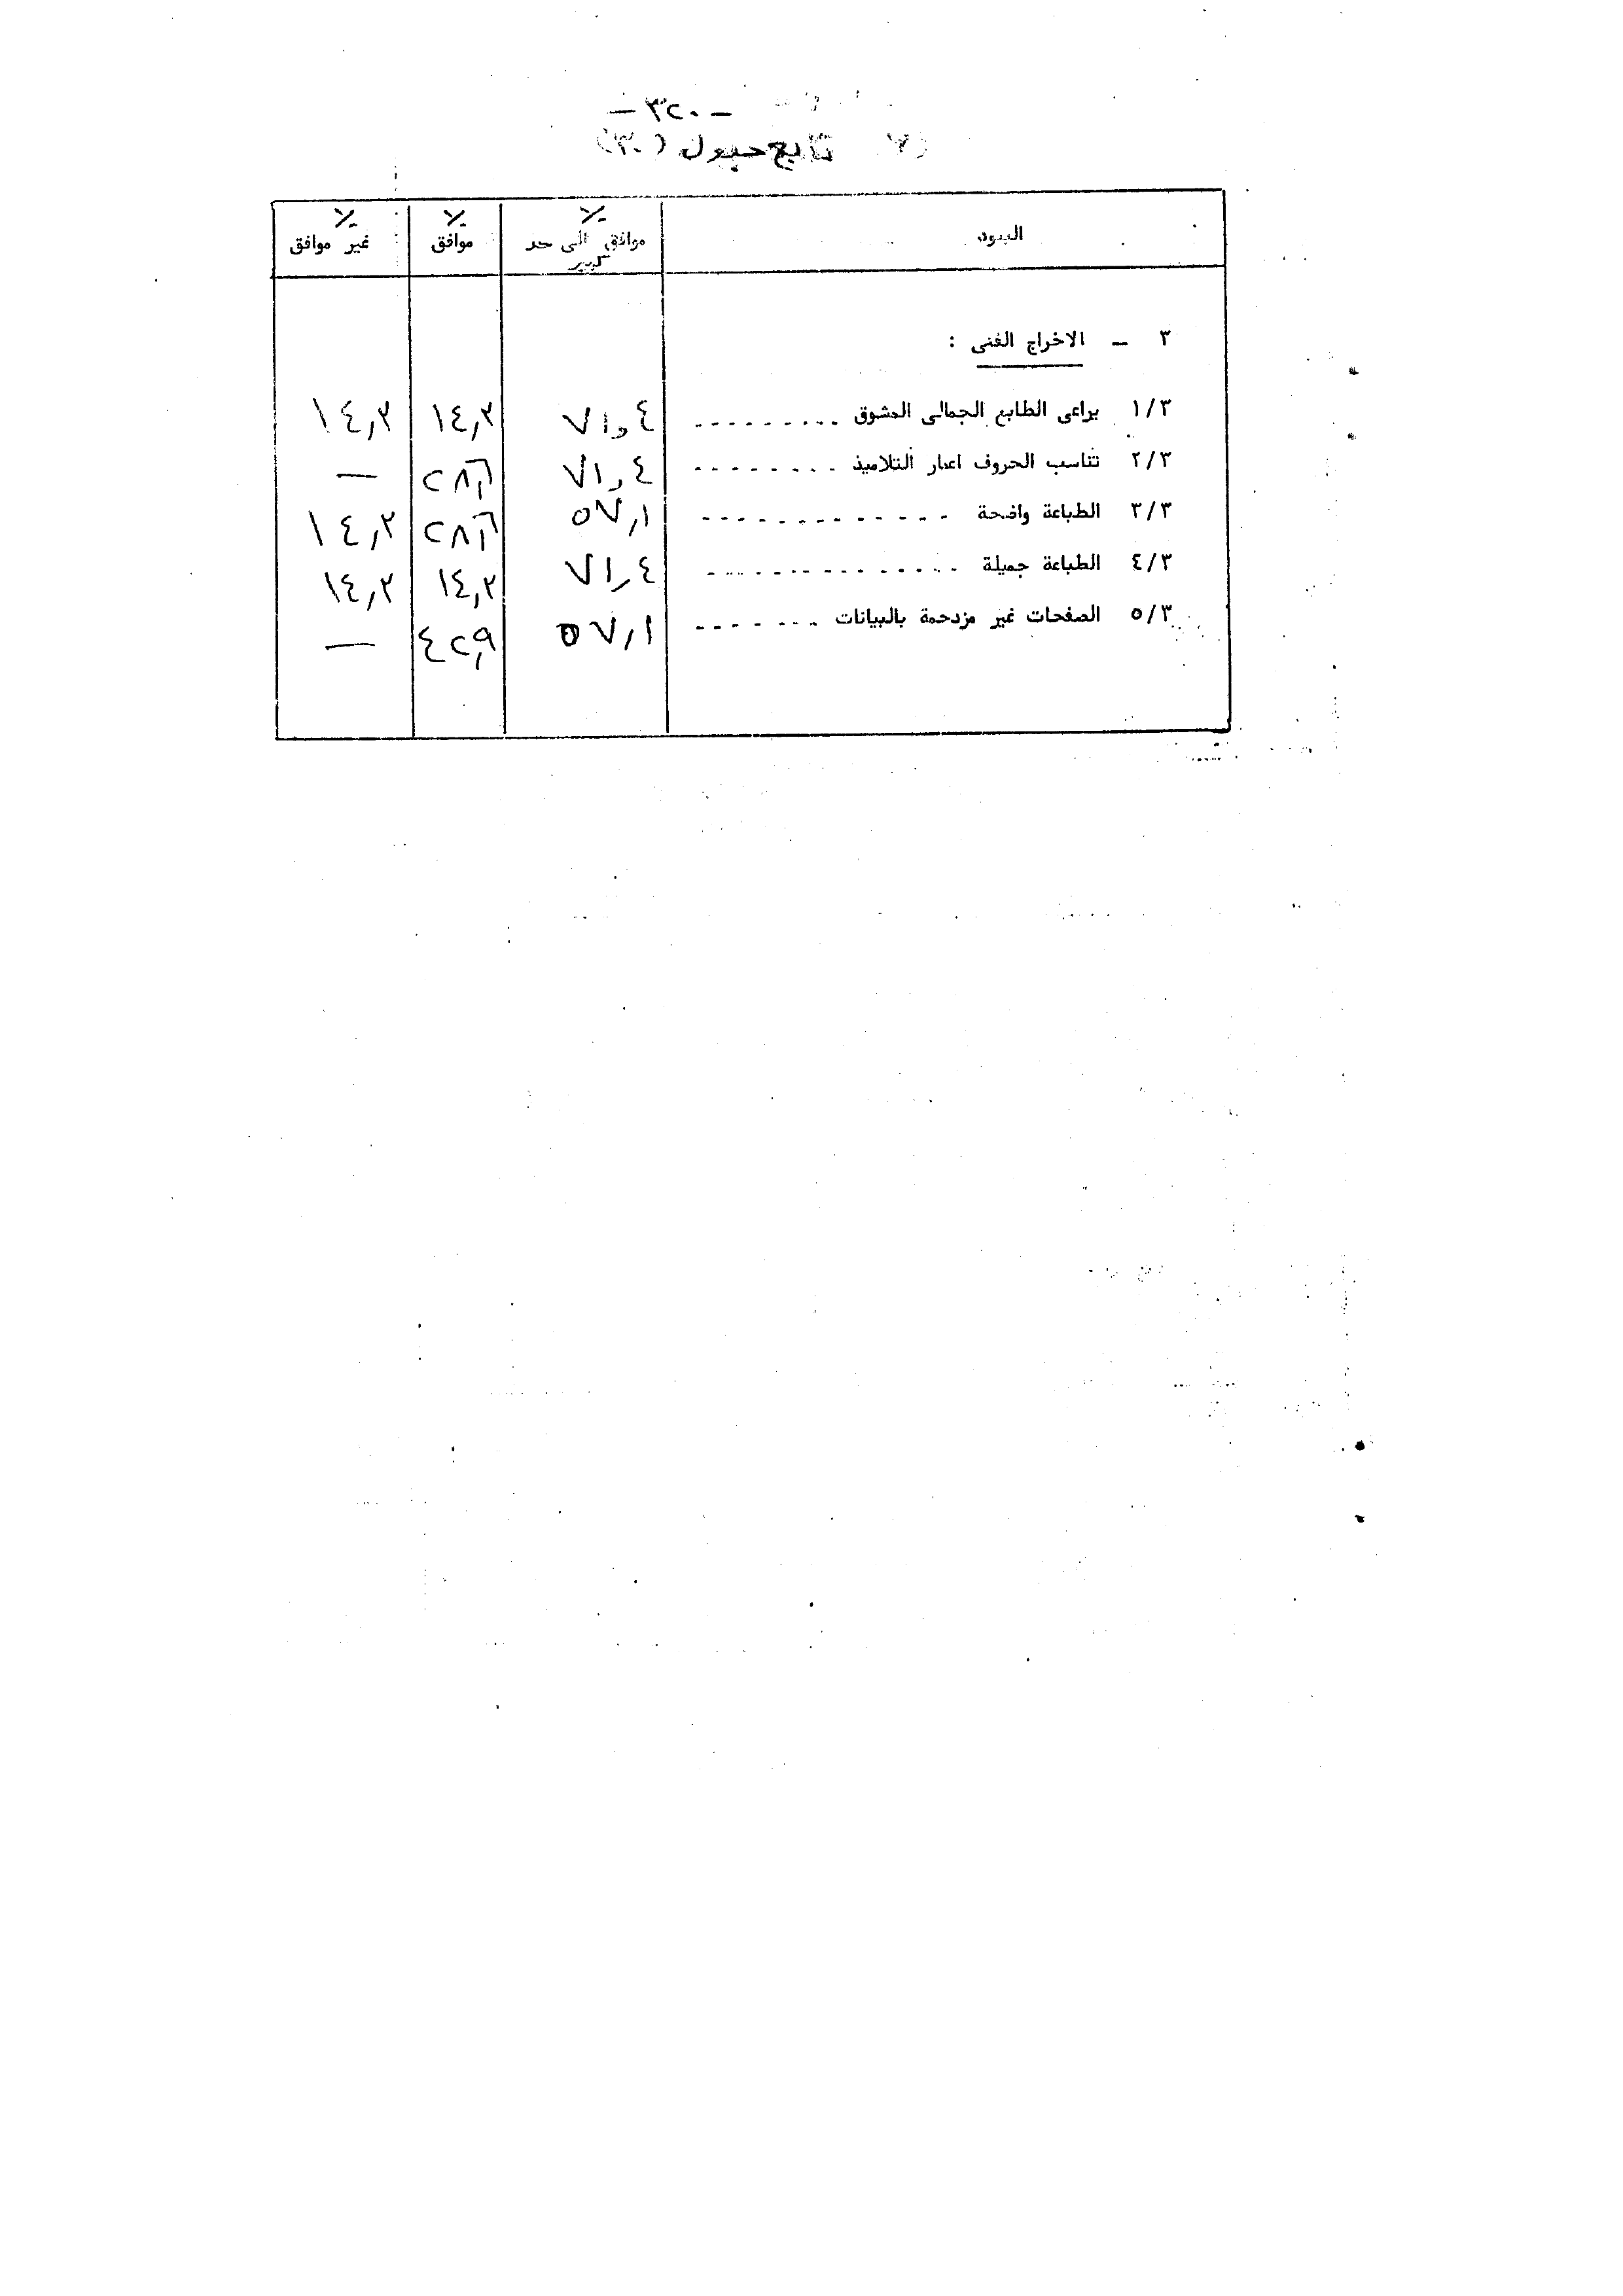 - ٣٢٠ -
تابع جدول (٣٠)
البنود ٪ موافق الى حد كبير ٪ موافق ٪ غير موافق
٣ - الاخراج الفنى :
١/٣ يراعى الطابع الجمالى المشوق ٧١,٤ ١٤,٢ ١٤,٢
٢/٣ تناسب الحروف اعمار التلاميذ ٧١,٤ ٢٨,٦ -
٣/٣ الطباعة واضحة ٥٧,١ ٢٨,٦ ١٤,٢
٤/٣ الطباعة جميلة ٧١,٤ ١٤,٢ ١٤,٢
٥/٣ الصفحات غير مزدحمة بالبيانات ٥٧,١ ٤٢,٩ -